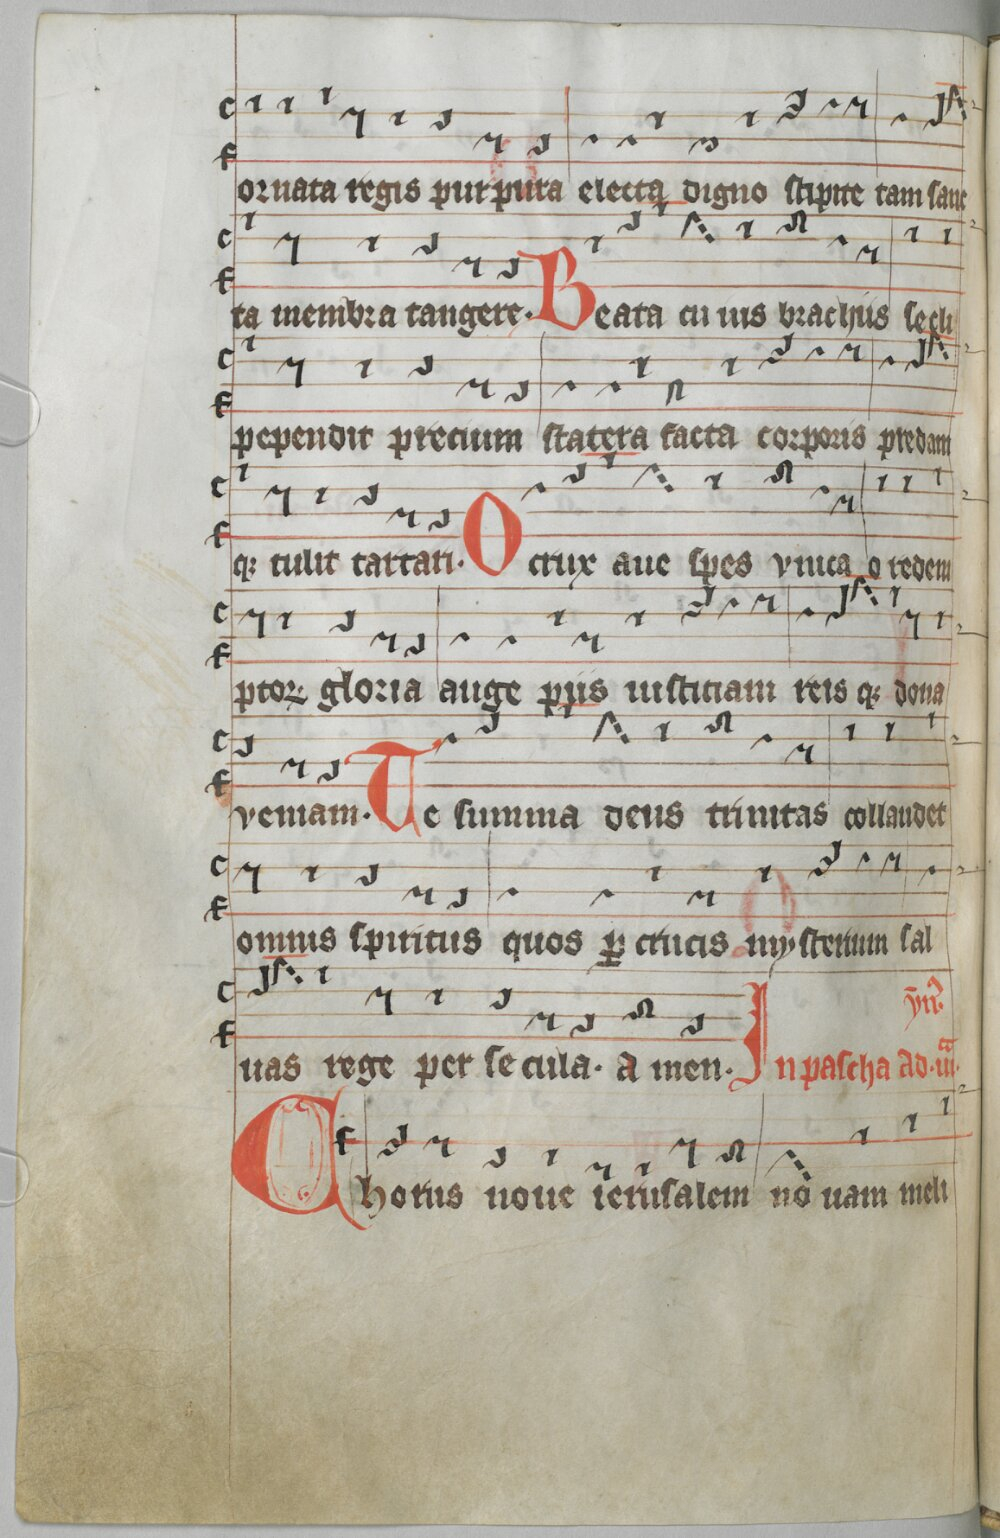 ornata regis purpura electa digno stipite tam sanc
ta membra tangere. Beata cuius brachiis secli
pependit precium statera facta corporis predam
q; tulit tartari. O crux aue spes vnica o redem
ptor gloria auge pijs iusticiam reis q; dona
veniam. Te summa deus trinitas collaudet
omnis spiritus quos p crucis mysterium sal
uas rege per secula. Amen. In pascha ad
Chorus noue ierusalem nouam meli